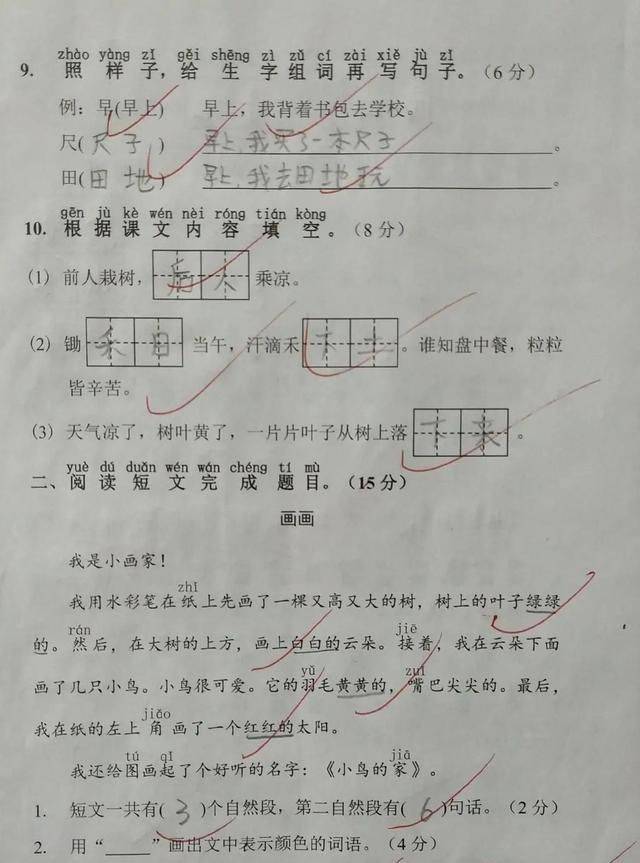 zhào yàng zǐ gěi shēng zì zǔ cí zài xiě jù zǐ
9. 照样子,给生字组词再写句子。(6分)
例：早(早上) 早上，我背着书包去学校。
尺(尺子) 早上,我买了一本尺子。
田(田地) 早上,我去田地玩。
gēn jù kè wén nèi róng tián kòng
10. 根据课文内容填空。(8分)
(1) 前人栽树，后人乘凉。
(2) 锄禾日当午，汗滴禾下土。谁知盘中餐，粒粒
皆辛苦。
(3) 天气凉了，树叶黄了，一片片叶子从树上落下来。
yuè dú duǎn wén wán chéng tí mù
二、阅读短文完成题目。(15分)
画画
我是小画家！
zhǐ
我用水彩笔在纸上先画了一棵又高又大的树，树上的叶子绿绿
rán jiē
的。然后，在大树的上方，画上白白的云朵。接着，我在云朵下面
yǔ zuǐ
画了几只小鸟。小鸟很可爱。它的羽毛黄黄的，嘴巴尖尖的。最后，
jiǎo
我在纸的左上角画了一个红红的太阳。
tú qǐ jiā
我还给图画起了个好听的名字：《小鸟的家》。
1. 短文一共有(3)个自然段，第二自然段有(6)句话。(2分)
2. 用“____”画出文中表示颜色的词语。(4分)